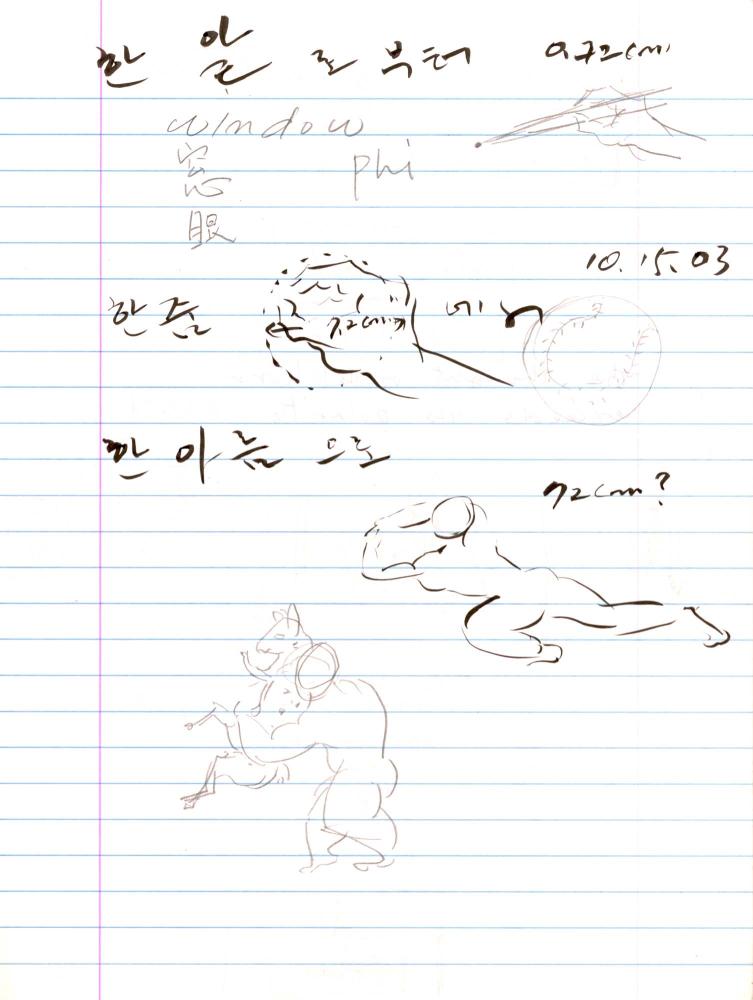 한 알로부터 0.72cm
window
窓 phi
眼
10.15.03
한줌 7.2cm
한아름으로
72cm?